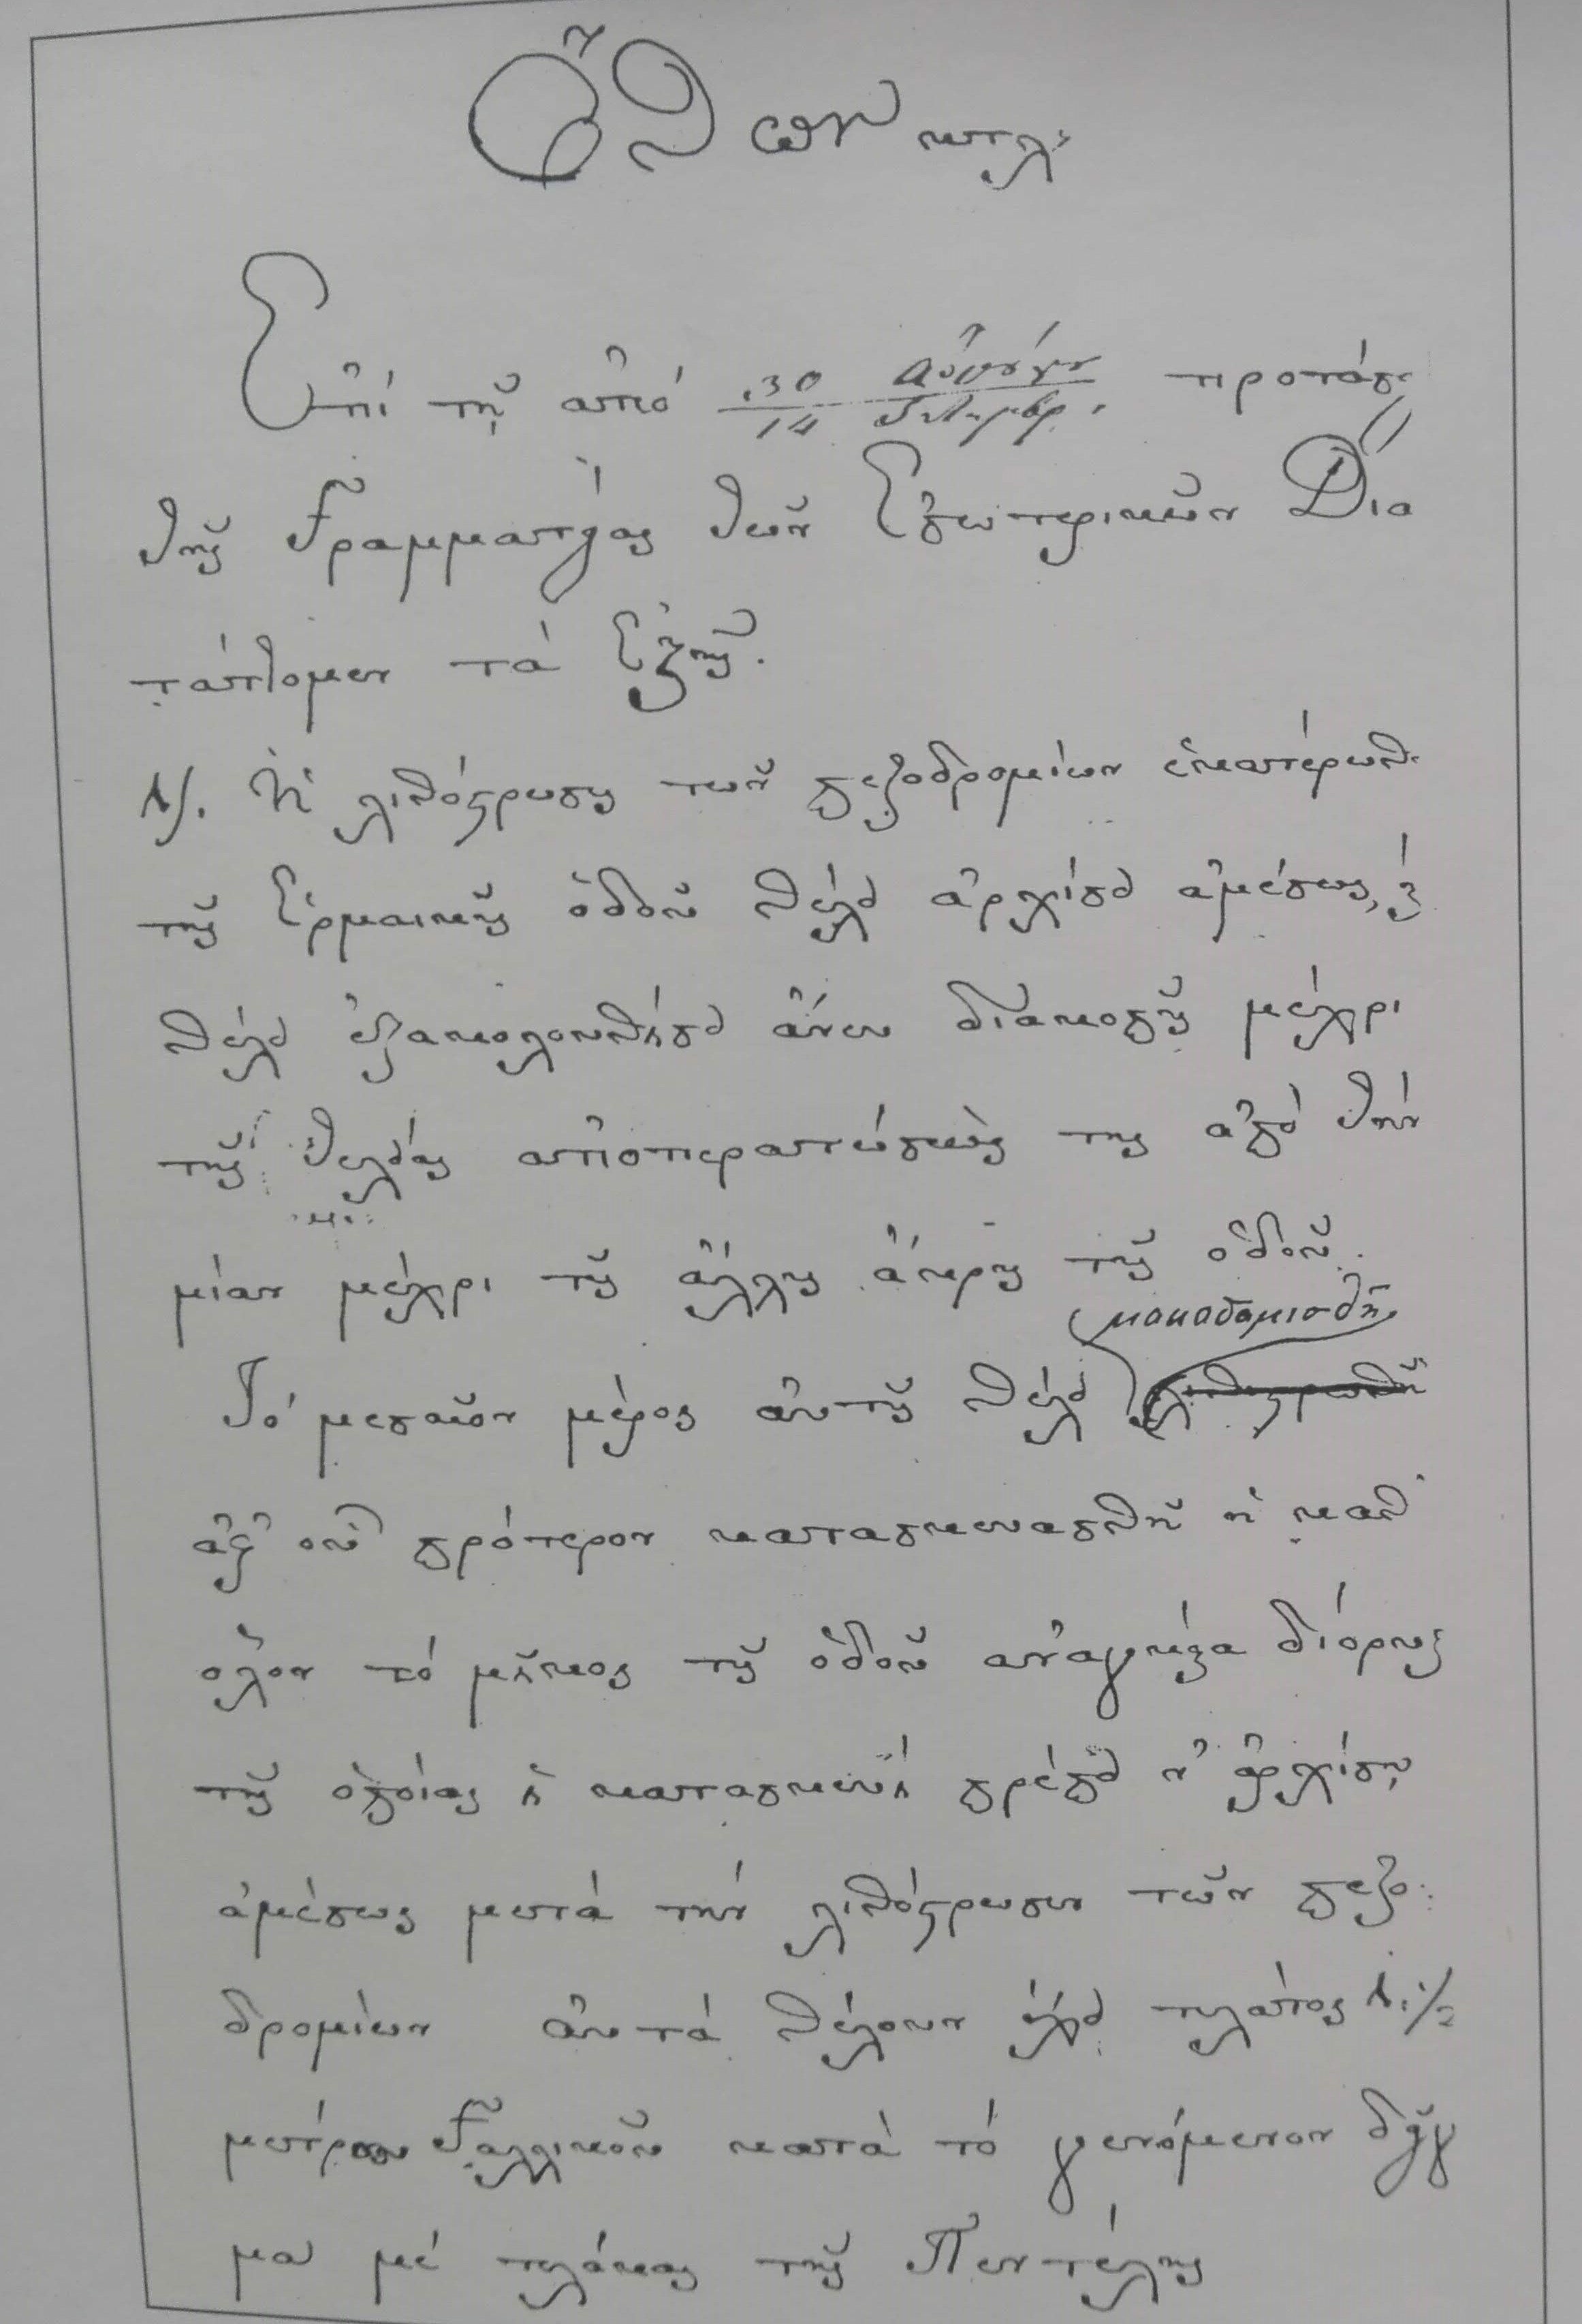 Ὄθων κτλ.
Ἐπὶ τῇ ἀπὸ 30/14 Αὐγούστ/Σεπτεμβρ. προτάσει
τῆς Γραμματείας τῶν Ἐσωτερικῶν Δια
τάττομεν τὰ ἑξῆς.
1). Ἡ λιθόστρωσις τῶν πεζοδρομίων ἑκατέρωθε
τῆς Ἑρμαικῆς ὁδοῦ θέλει ἀρχίσει ἀμέσως, καὶ
θέλει ἐξακολουθήσει ἄνευ διακοπῆς μέχρι
τῆς τελείας ἀποπερατώσεώς της ἀπὸ τὴν
μίαν μέχρι τῆς ἄλλης ἄκρης τῆς ὁδοῦ.
μακαδαμισθῆ
Τὸ μεσαῖον μέρος αὐτῆς θέλει λιθοστρωθῆ
ἀφ' οὗ πρότερον κατασκευασθῆ ἡ καθ'
ὅλον τὸ μῆκος τῆς ὁδοῦ ἀναγκαία διόρυξ
τῆς ὁποίας ἡ κατασκευὴ πρέπει ν' ἀρχίσῃ
ἀμέσως μετὰ τὴν λιθόστρωσιν τῶν πεζο
δρομίων αὐτὰ θέλουν ἔχει πλάτος 1.1/2
μέτρου Γαλλικοῦ κατὰ τὸ γενόμενον δεῖγ
μα μὲ πλάκας τῆς Πεντέλης